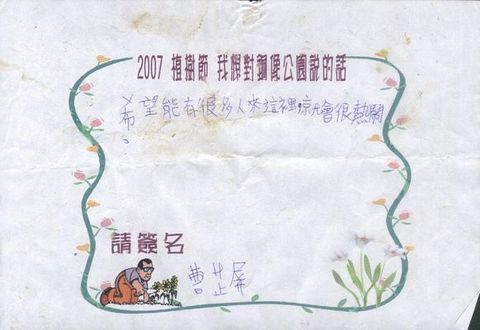 2007 植樹節 我想對銅像公園說的話
希望能有很多人來這裡,就會很熱鬧
。
請簽名
曹芷屏